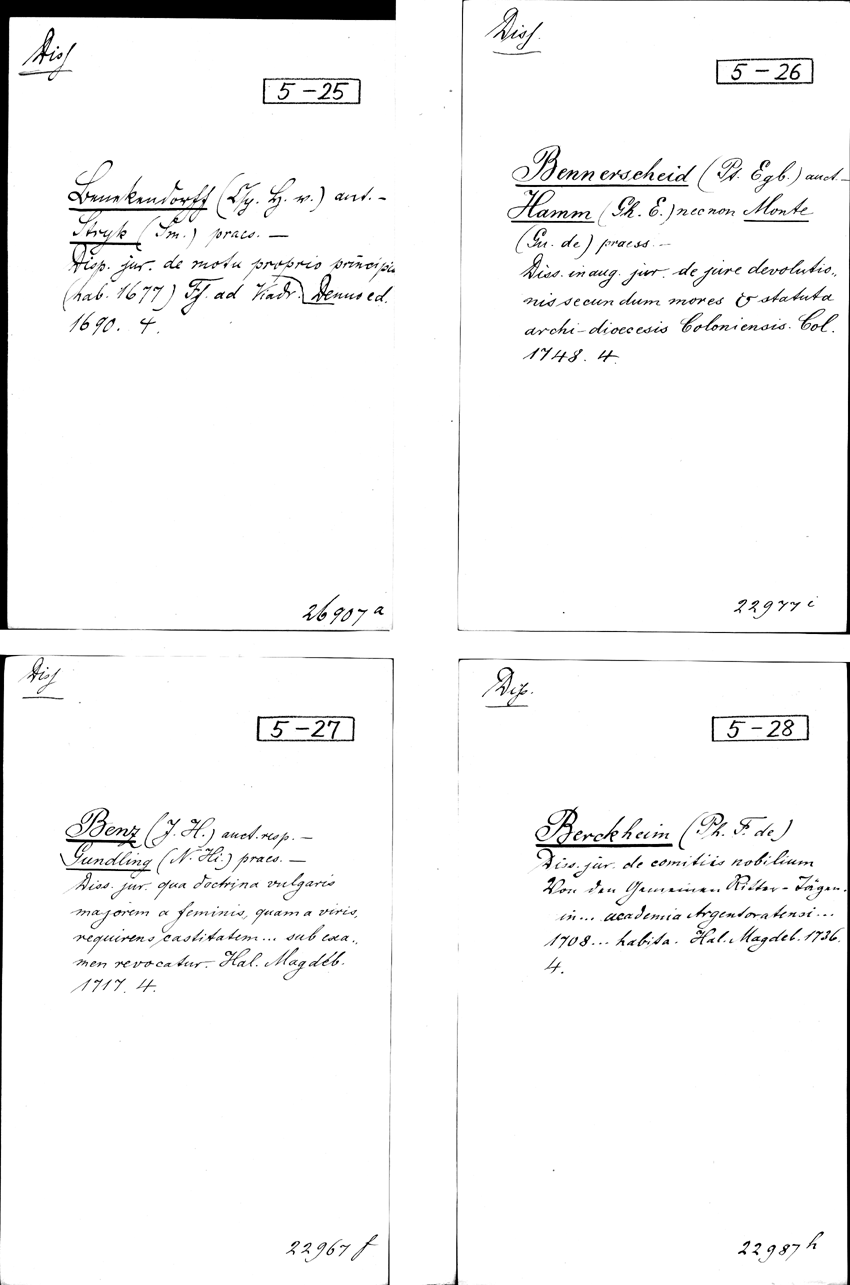 Diss
5-25
Benekendorff (Chr. H. v.) auct. -
Stryk (Sm.) praes. -
Disp. jur. de motu proprio principis
(hab. 1677) Ff. ad Viadr. Denuo ed.
1690. 4.
26907 a
Diss.
5-26
Bennerscheid (Pt. Egb.) auct. -
Hamm (Gh. E.) necnon Monte
(Gu. de) praess. -
Diss. inaug. jur. de jure devolutio,,
nis secundum mores & statuta
archi-dioecesis Coloniensis. Col.
1748. 4.
22977 i
Diss
5-27
Benz (J. H.) auct. resp. -
Gundling (N. Hi.) praes. -
Diss. jur. qua doctrina vulgaris
majorem a feminis, quam a viris,
requirens castitatem... sub exa,,
men revocatur. Hal. Magdeb.
1717. 4.
22967 f
Diss.
5-28
Berckheim (Ph. F. de)
Diss. jur. de comitiis nobilium
Von den Gemeinen Ritter-Tägen.
in... academia Argentoratensi...
1708... habita. Hal. Magdeb. 1736.
4.
22987 h